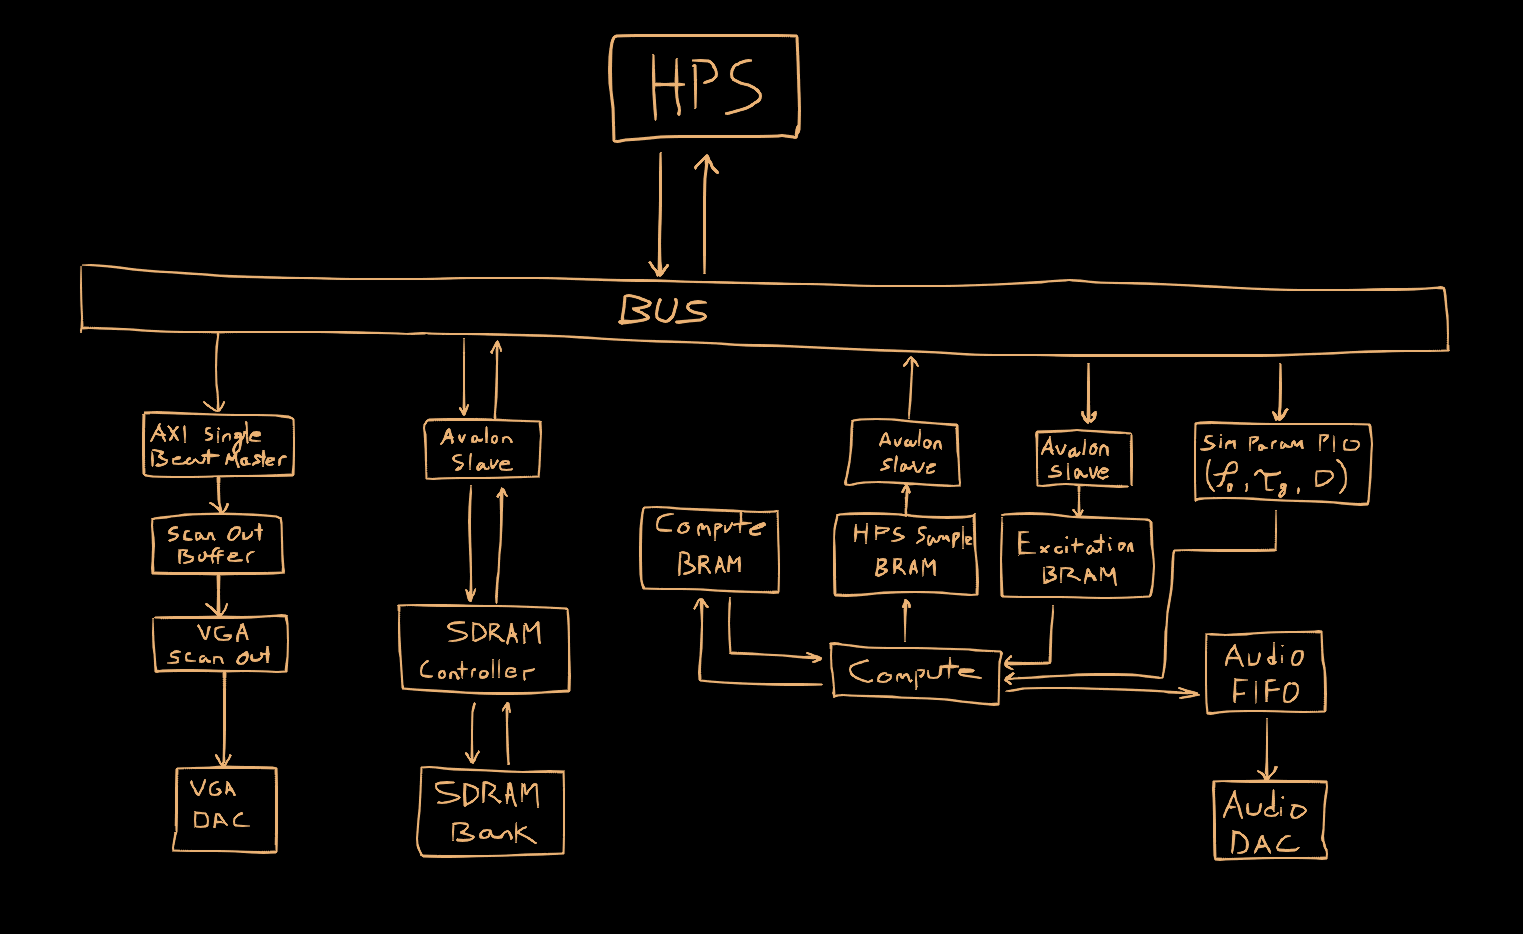 HPS
BUS
AXI Single
Beat Master
Scan Out
Buffer
VGA
Scan Out
VGA
DAC
Avalon
Slave
SDRAM
Controller
SDRAM
Bank
Compute
BRAM
Avalon
Slave
HPS Sample
BRAM
Compute
Avalon
Slave
Excitation
BRAM
Sim Param PIO
(ρ₀, τg, D)
Audio
FIFO
Audio
DAC